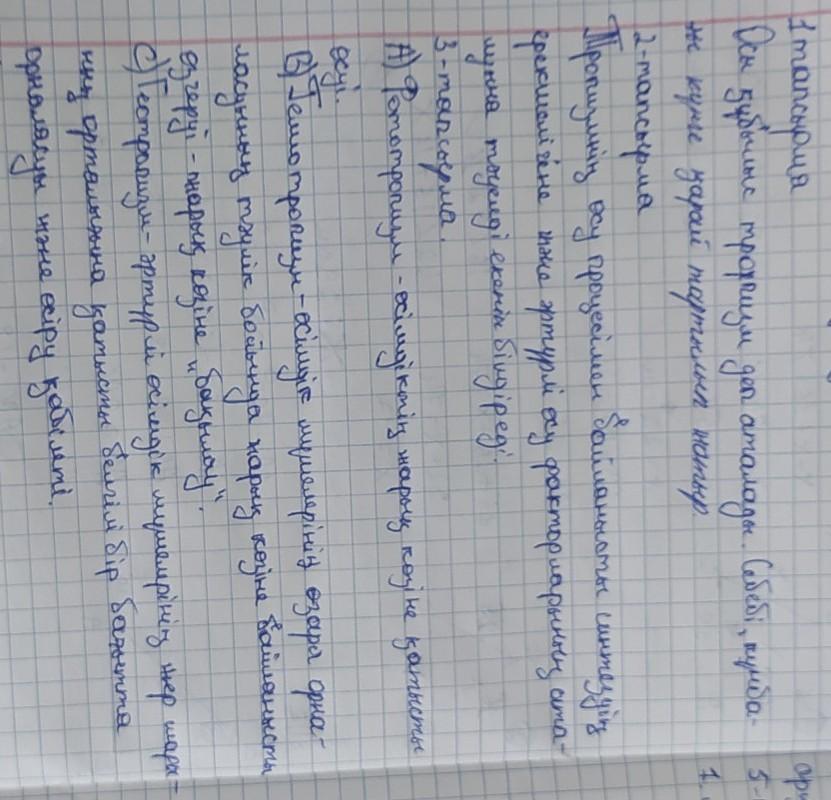 1 тапсырма
Осы құбылыс тропизм деп аталады. Себебі, күнба-
ғыс күнге қарай тартылып жатыр.
2-тапсырма
Тропизмнің өсу процесімен байланысты синтездің
ерекшелігіне және әртүрлі өсу факторларының
тәуелді екенін білдіреді.
3-тапсырма.
А) Фототропизм - өсімдіктің жарық көзіне қатысты
өсуі.
В) Гелиотропизм - өсімдік мүшелерінің өзара орна-
ласуының тәулік бойында жарық көзіне байланысты
өзгеруі - жарық көзіне "бақылау".
С) Геотропизм - әртүрлі өсімдік мүшелерінің жер шары-
ның орталығына қатысты белгілі бір бағытта
орналасуы және өсіру қабілеті.
5-
1.